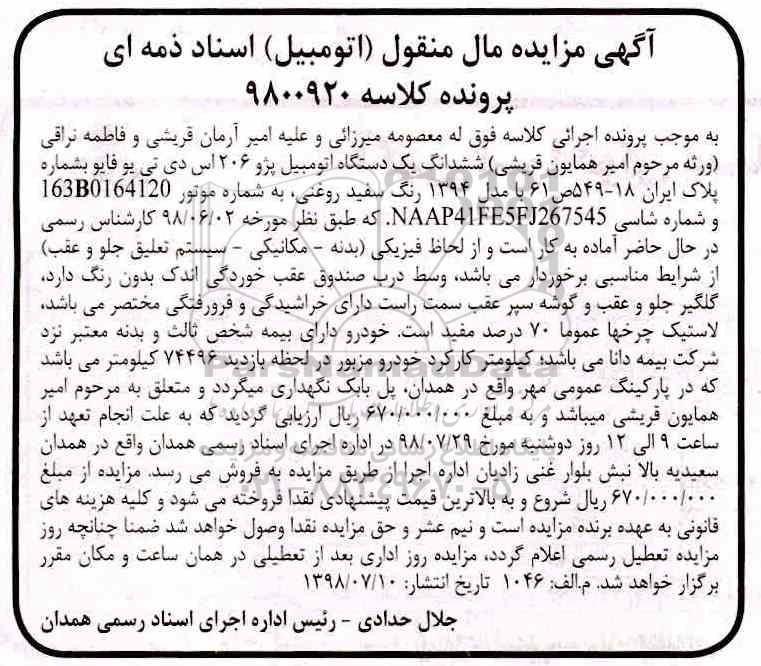 آگهی مزایده مال منقول (اتومبیل) اسناد ذمه ای
پرونده کلاسه ۹۸۰۰۹۲۰
به موجب پرونده اجرائی کلاسه فوق له معصومه میرزائی و علیه امیر آرمان قریشی و فاطمه نراقی
(ورثه مرحوم امیر همایون قریشی) ششدانگ یک دستگاه اتومبیل پژو ۲۰۶ اس دی تی یو فایو بشماره
پلاک ایران ۱۸-۵۴۹ص۶۱ با مدل ۱۳۹۴ رنگ سفید روغنی، به شماره موتور 163B0164120
و شماره شاسی NAAP41FE5FJ267545. که طبق نظر مورخه ۹۸/۰۶/۰۲ کارشناس رسمی
در حال حاضر آماده به کار است و از لحاظ فیزیکی (بدنه - مکانیکی - سیستم تعلیق جلو و عقب)
از شرایط مناسبی برخوردار می باشد، وسط درب صندوق عقب خوردگی اندک بدون رنگ دارد،
گلگیر جلو و عقب و گوشه سپر عقب سمت راست دارای خراشیدگی و فرورفتگی مختصر می باشد،
لاستیک چرخها عموما ۷۰ درصد مفید است. خودرو دارای بیمه شخص ثالث و بدنه معتبر نزد
شرکت بیمه دانا می باشد؛ کیلومتر کارکرد خودرو مزبور در لحظه بازدید ۷۴۴۹۶ کیلومتر می باشد
که در پارکینگ عمومی مهر واقع در همدان، پل بابک نگهداری میگردد و متعلق به مرحوم امیر
همایون قریشی میباشد و به مبلغ ۶۷۰/۰۰۰/۰۰۰ ریال ارزیابی گردید که به علت انجام تعهد از
ساعت ۹ الی ۱۲ روز دوشنبه مورخ ۹۸/۰۷/۲۹ در اداره اجرای اسناد رسمی همدان واقع در همدان
سعیدیه بالا نبش بلوار غنی زادیان اداره اجرا از طریق مزایده به فروش می رسد. مزایده از مبلغ
۶۷۰/۰۰۰/۰۰۰ ریال شروع و به بالاترین قیمت پیشنهادی نقدا فروخته می شود و کلیه هزینه های
قانونی به عهده برنده مزایده است و نیم عشر و حق مزایده نقدا وصول خواهد شد ضمنا چنانچه روز
مزایده تعطیل رسمی اعلام گردد، مزایده روز اداری بعد از تعطیلی در همان ساعت و مکان مقرر
برگزار خواهد شد. م.الف: ۱۰۴۶ تاریخ انتشار: ۱۳۹۸/۰۷/۱۰
جلال حدادی - رئیس اداره اجرای اسناد رسمی همدان
ParsNamadData
۰۲۱-۸۸۳۴۹۶۷۰-۵